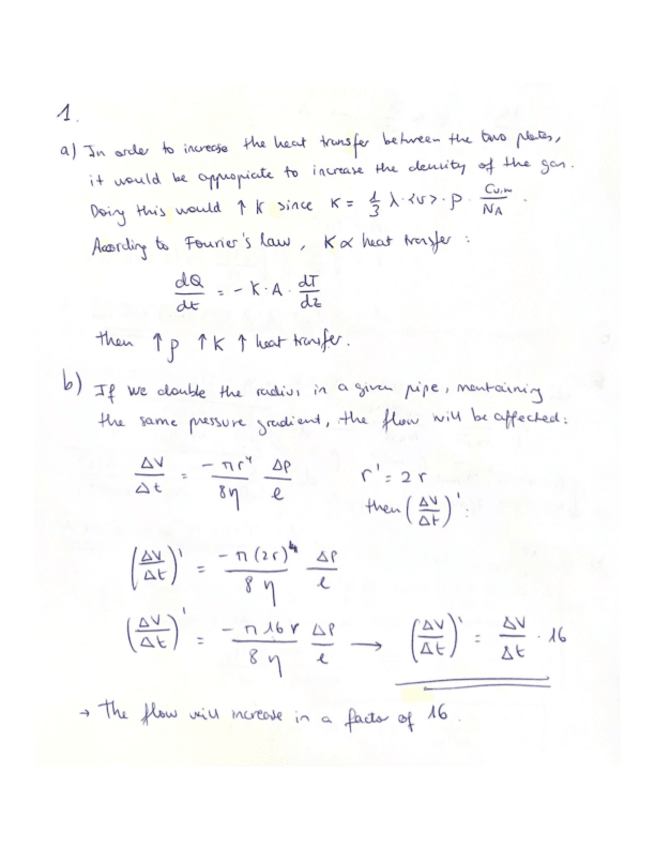 1.
a) In order to increase the heat transfer between the two plates,
it would be appropiate to increase the density of the gas.
Doing this would ↑ K since K = 1/3 λ·<v>·ρ · Cv,m/NA.
According to Fourier's law, K ∝ heat transfer:
dQ/dt = - K·A· dT/dz
then ↑ρ ↑K ↑ heat transfer.
b) If we double the radius in a given pipe, mantaining
the same pressure gradient, the flow will be affected:
ΔV/Δt = -πr⁴/8η ΔP/l r' = 2r
then (ΔV/Δt)':
(ΔV/Δt)' = -π(2r)⁴/8η ΔP/l
(ΔV/Δt)' = -π16r/8η ΔP/l → (ΔV/Δt)' = ΔV/Δt · 16
→ The flow will increase in a factor of 16.